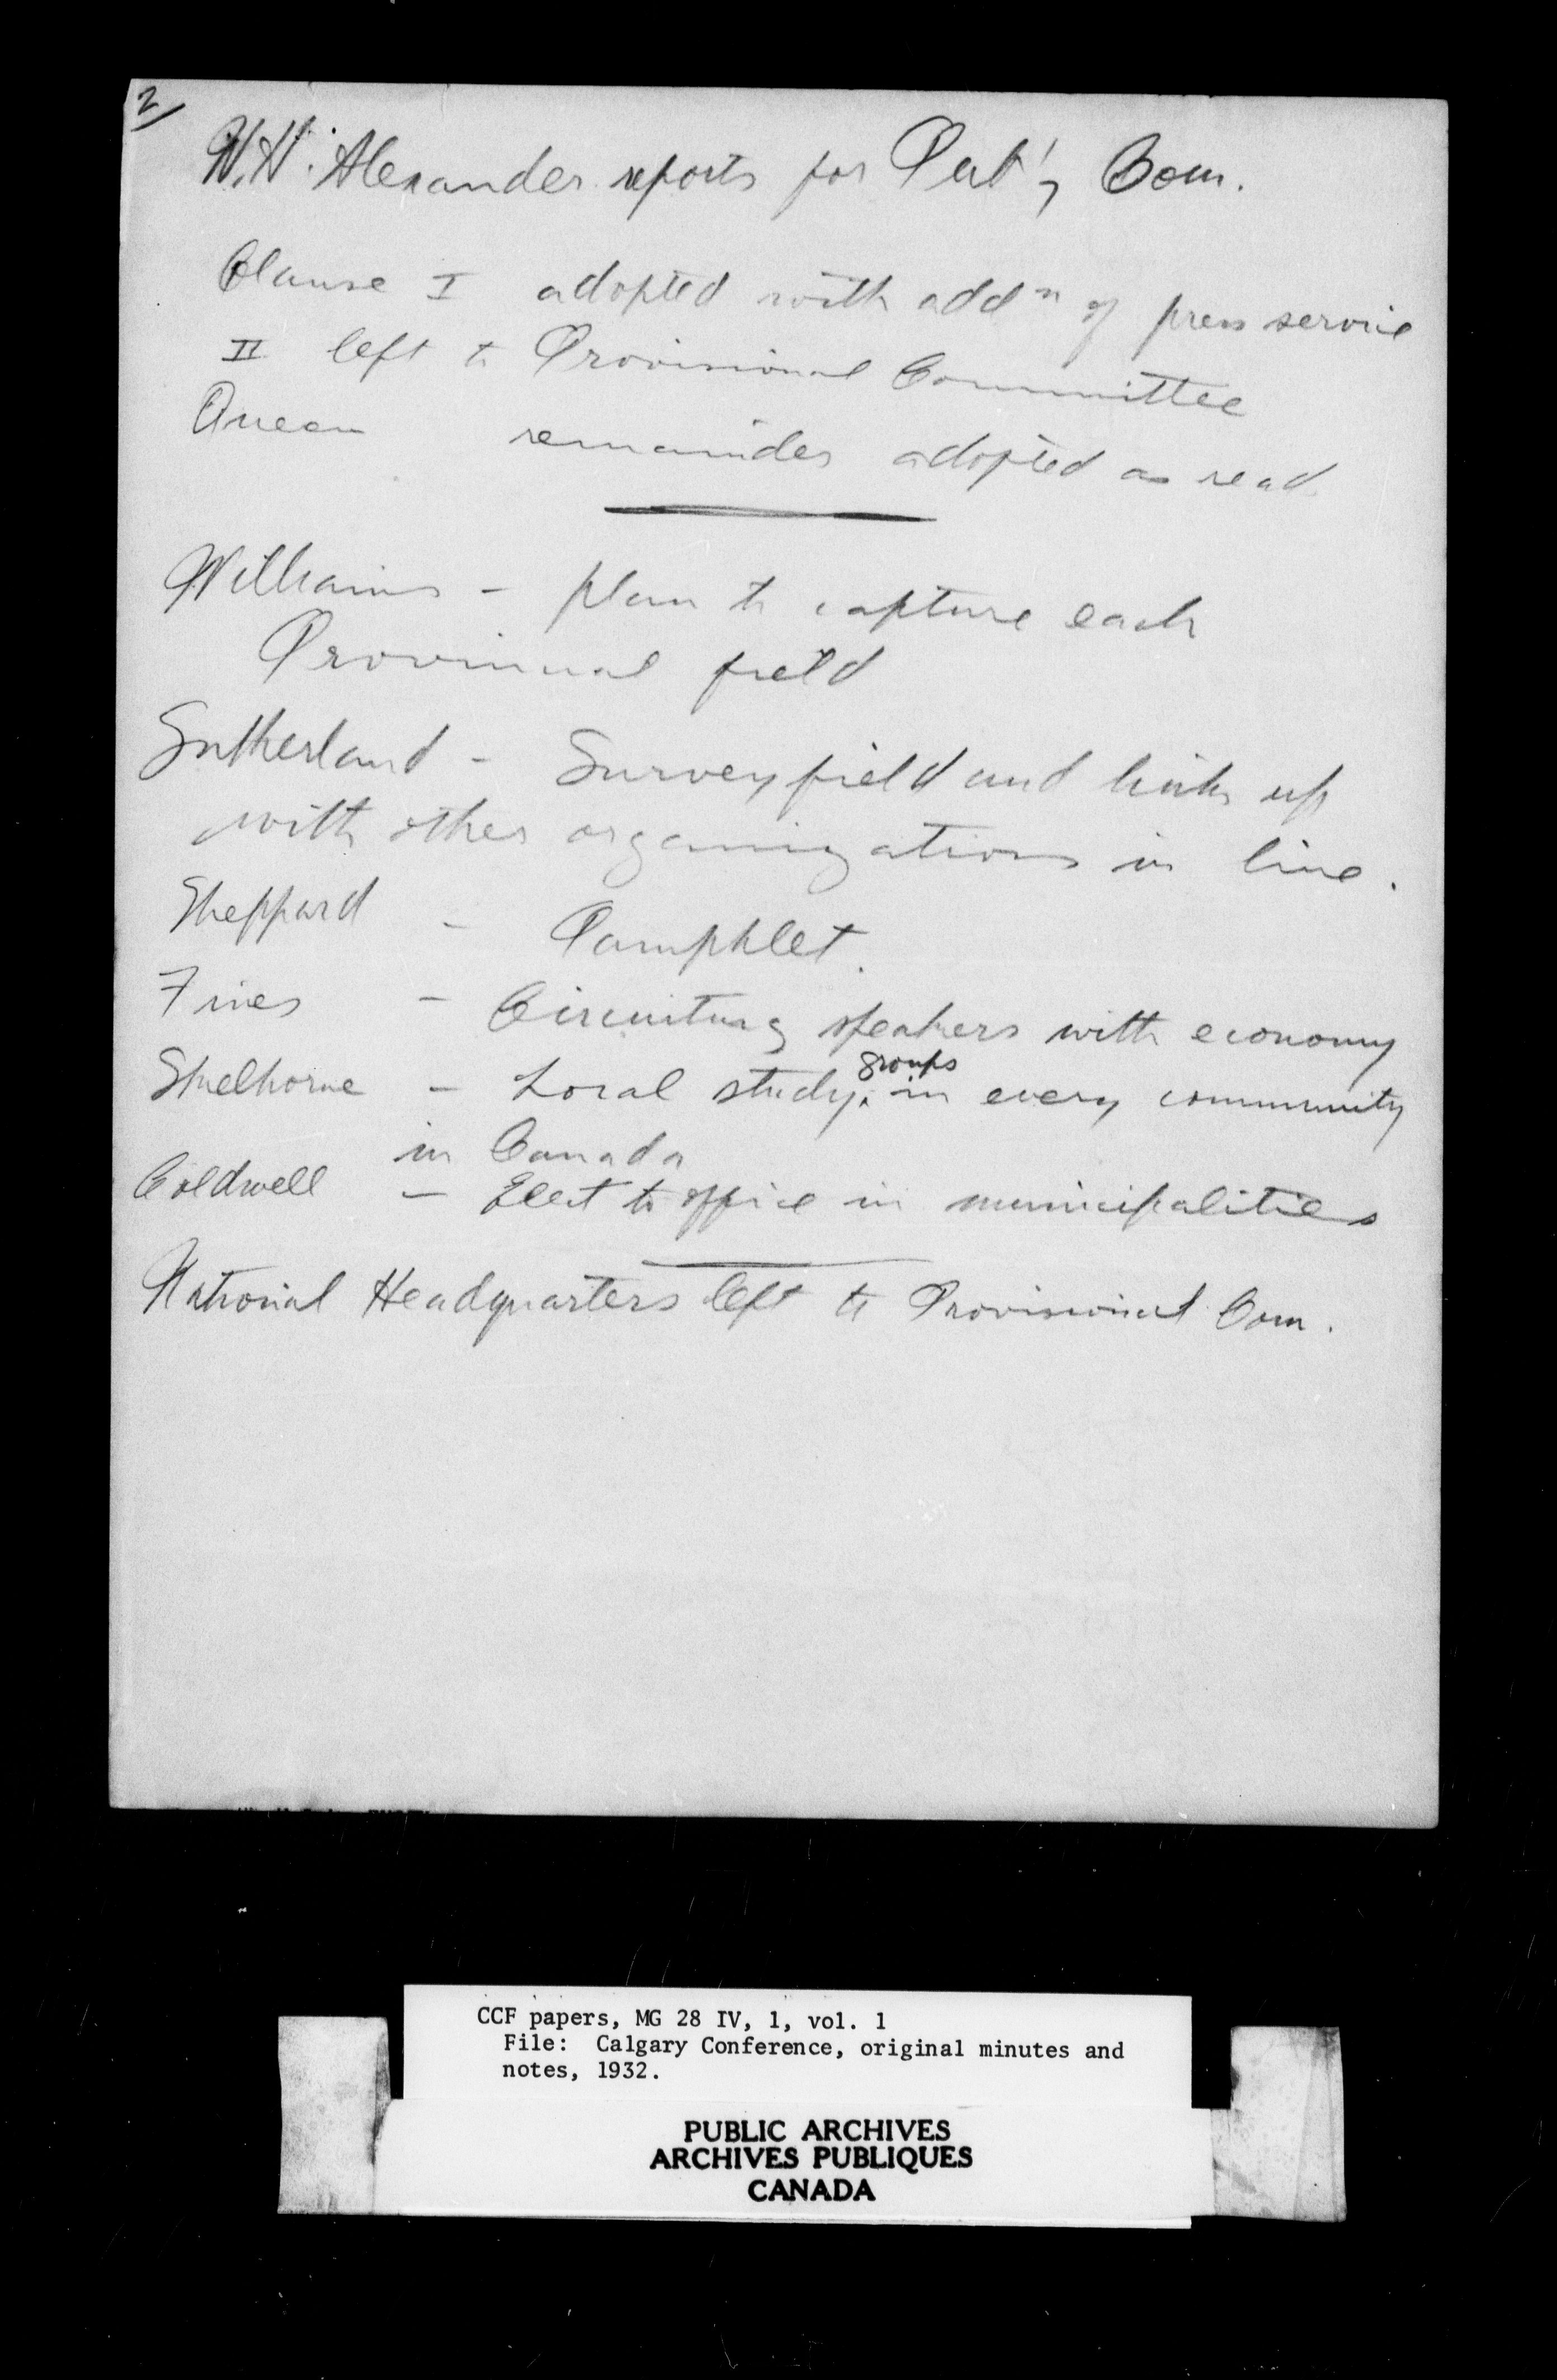 2/
W.N. Alexander reports for Pub'y Com.
Clause I adopted with addn of press service
II left to Provisional Committee
Queen remainder adopted as read
Williams - plan to capture each
Provincial field
Sutherland - Survey field and link up
with other organizations in line.
Sheppard - Pamphlet.
Fines - Circuiting speakers with economy
groups
Shelhorne - Local study in every community
in Canada
Coldwell - Elect to office in municipalities
National Headquarters left to Provisional Com.
CCF papers, MG 28 IV, 1, vol. 1
File: Calgary Conference, original minutes and
notes, 1932.
PUBLIC ARCHIVES
ARCHIVES PUBLIQUES
CANADA